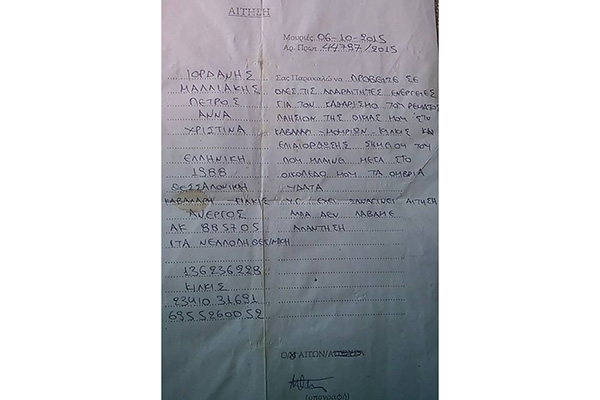 ΑΙΤΗΣΗ
Μουριές 06-10-2015
Αρ. Πρωτ. 44787/2015
ΙΟΡΔΑΝΗΣ
ΜΑΛΛΙΑΚΗΣ
ΠΕΤΡΟΣ
ΑΝΝΑ
ΧΡΙΣΤΙΝΑ
ΕΛΛΗΝΙΚΗ
1988
ΘΕΣΣΑΛΟΝΙΚΗ
ΚΑΒΑΛΑΡΗ - ΚΙΛΚΙΣ
ΑΝΕΡΓΟΣ
ΑΚ 885705
Ι.ΤΑ ΝΕΑΠΟΛΗ ΘΕΣ/ΝΙΚΗ
136236228
ΚΙΛΚΙΣ
23410 31691
6955260052
Σας Παρακαλώ να ΠΡΟΒΕΙΤΕ ΣΕ
ΟΛΕΣ ΤΙΣ ΑΠΑΡΑΙΤΗΤΕΣ ΕΝΕΡΓΕΙΕΣ
ΓΙΑ ΤΟΝ ΚΑΘΑΡΙΣΜΟ ΤΟΥ ΡΕΜΑΤΟΣ
ΠΛΗΣΙΟΝ ΤΗΣ ΟΙΚΙΑΣ ΜΟΥ ΣΤΟ
ΚΑΒΑΛΑΡΙ - ΜΟΥΡΙΩΝ - ΚΙΛΚΙΣ ΚΑΙ
ΣΗΜΕΙΟΥ ΤΟΥ
ΠΟΥ ΜΠΑΙΝΕΙ ΜΕΣΑ ΣΤΟ
ΟΙΚΟΠΕΔΟ ΜΟΥ ΤΑ ΟΜΒΡΙΑ
ΥΔΑΤΑ
Υ.Γ. ΕΧΕΙ ΞΑΝΑΓΙΝΕΙ ΑΙΤΗΣΗ
ΑΛΛΑ ΔΕΝ ΛΑΒΑΜΕ
ΑΠΑΝΤΗΣΗ
Ο/Η ΑΙΤΩΝ/
(υπογραφή)